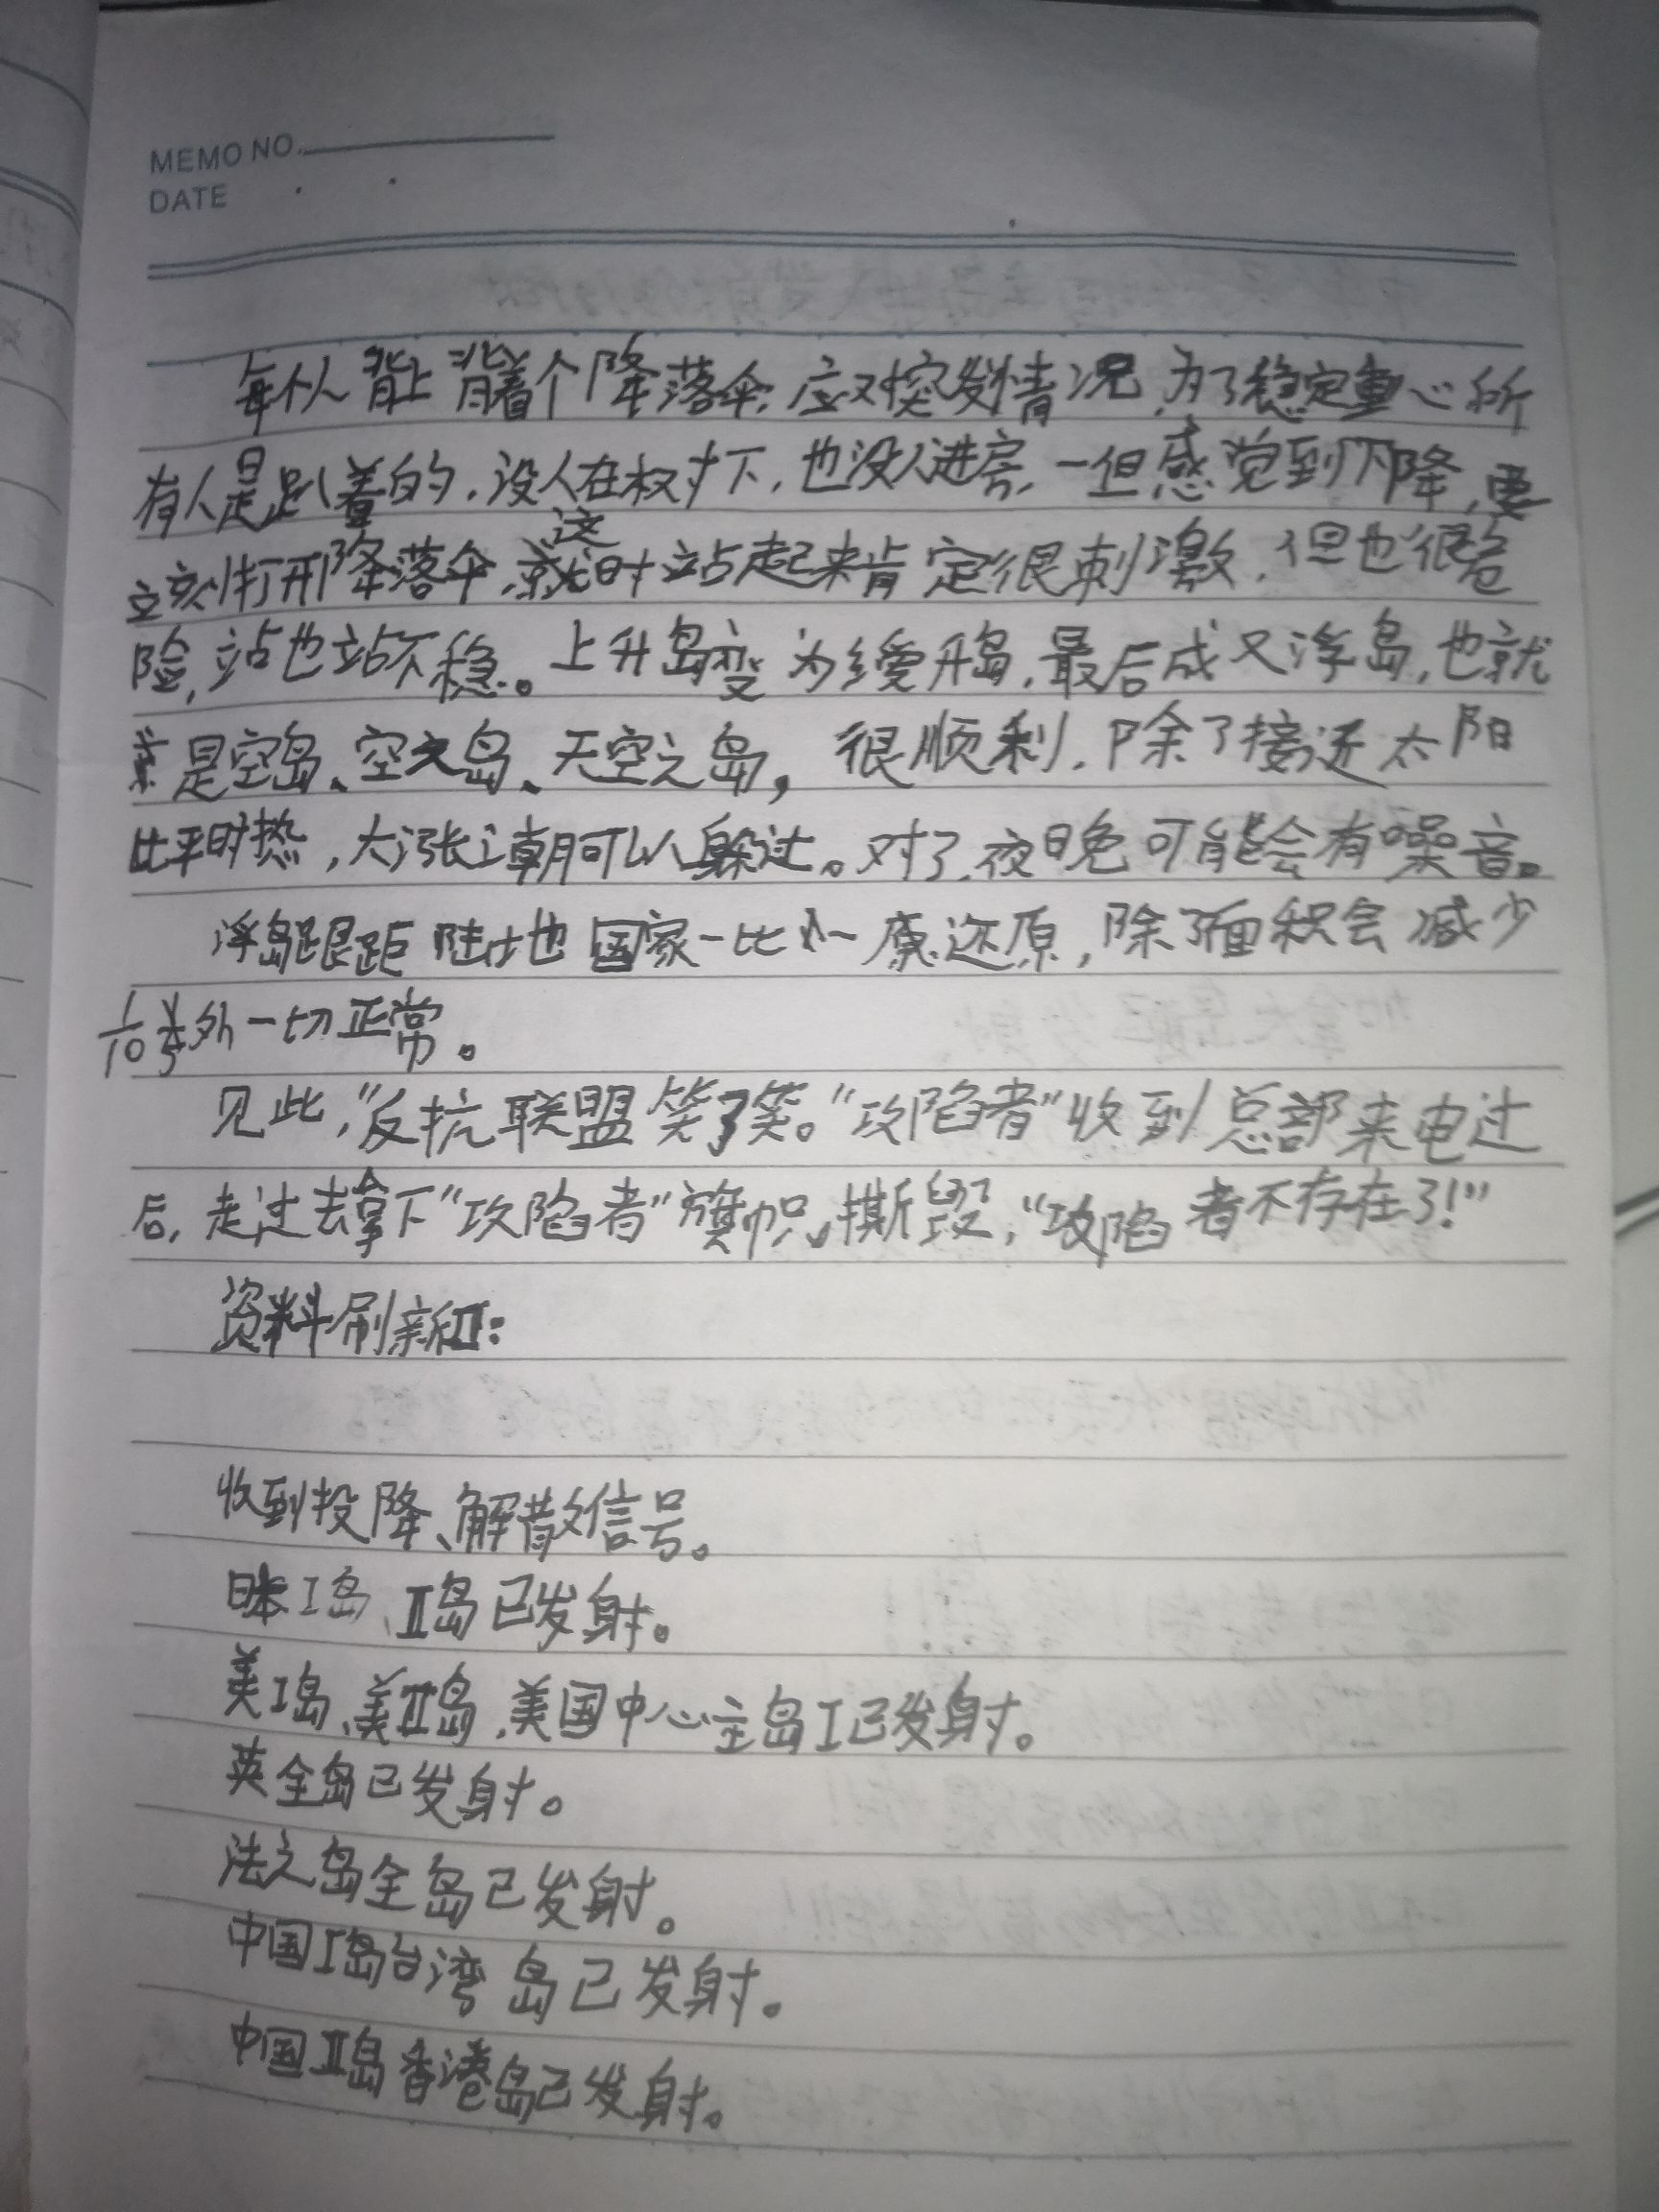 MEMO NO.
DATE
每个人背上背着个降落伞,应对突发情况,为了稳定重心所
有人是趴着的,没人在权才下,也没人进房,一但感觉到下降,要
立刻打开降落伞,这时站起来肯定很刺激,但也很危
险,站也站不稳。上升岛变为缓升岛,最后成又浮岛,也就
是空岛、空之岛、天空之岛,很顺利,除了接近太阳
比平时热,大涨潮可以躲过。对了,夜晚可能会有噪音。
浮岛跟距陆地国家一比一原还原,除了面积会减少
1/10 外一切正常。
见此,“反抗联盟笑了笑。“攻陷者”收到总部来电过
后,走过去拿下“攻陷者”旗帜,撕毁,“攻陷者不存在了!”
资料刷新II:
收到投降、解散信号。
日本I岛、II岛已发射。
美I岛、美II岛,美国中心主岛I已发射。
英全岛已发射。
法之岛全岛已发射。
中国I岛台湾岛已发射。
中国II岛香港岛已发射。